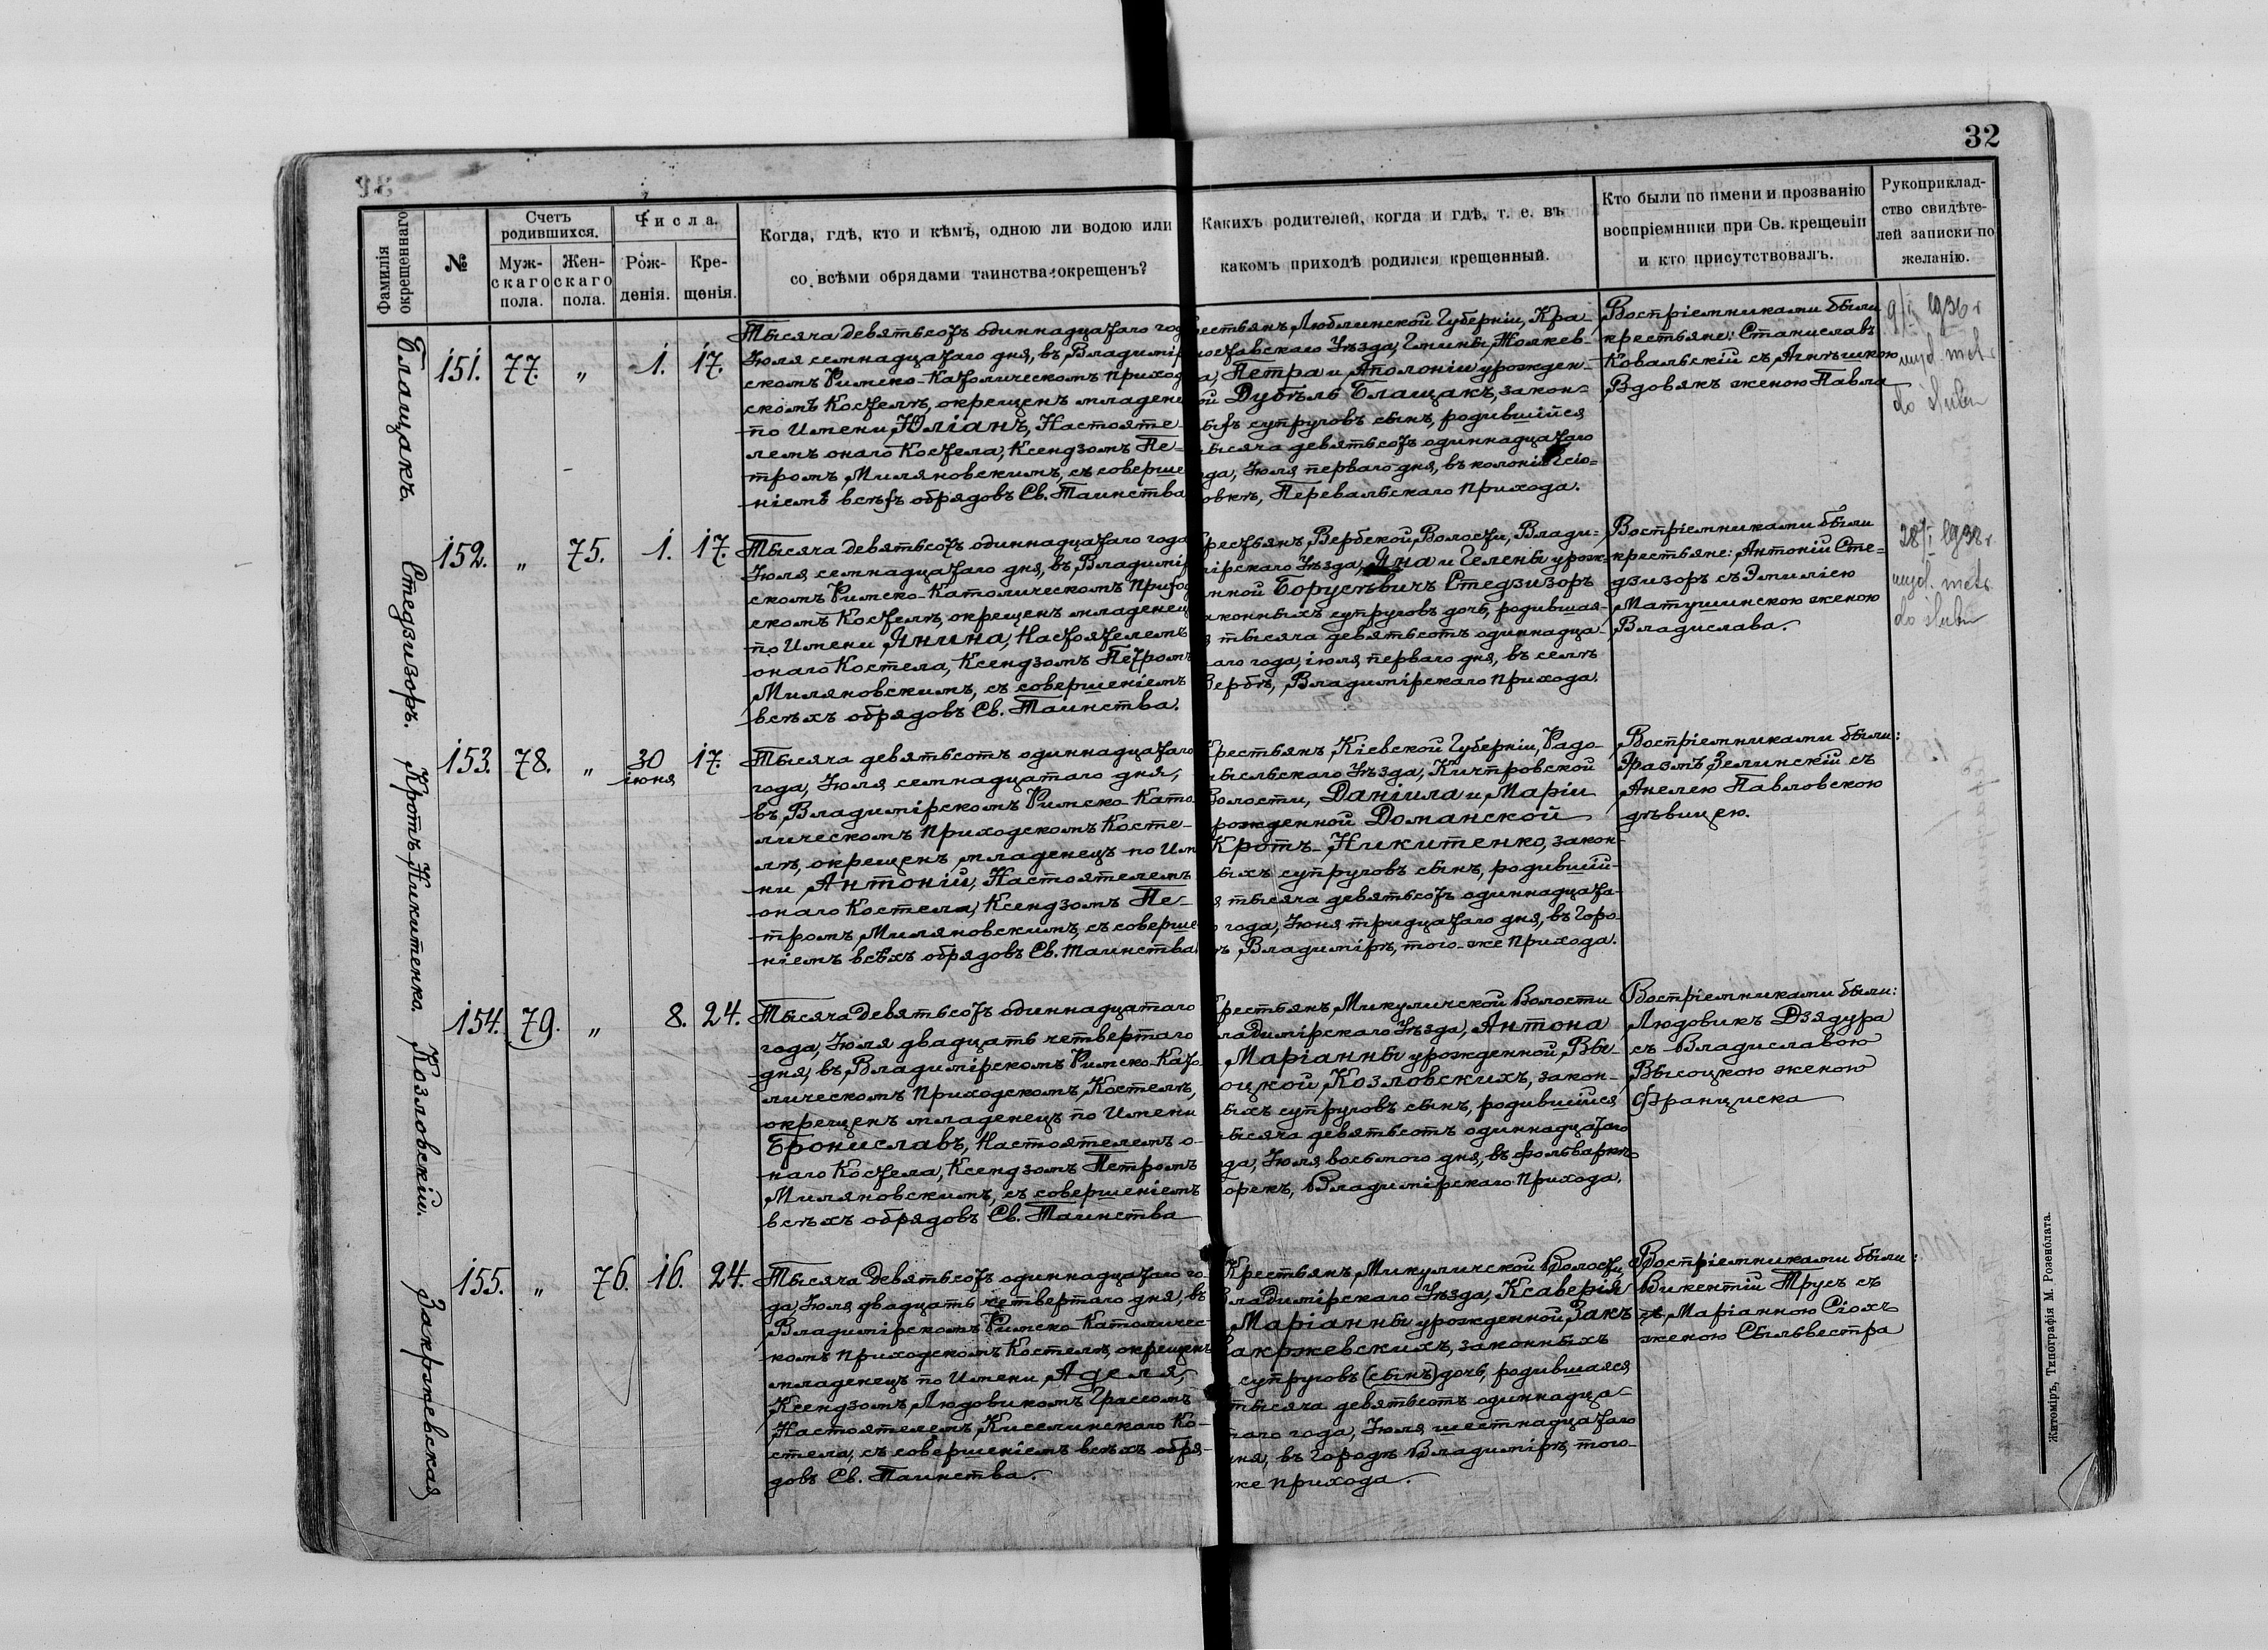 32
Фамилія окрещеннаго
№
Счетъ родившихся.
Муж-скаго пола.
Жен-скаго пола.
Числа.
Рож-денія.
Кре-щенія.
Когда, гдѣ, кто и кѣмъ, одною ли водою или
со всѣми обрядами таинства окрещенъ?
Какихъ родителей, когда и гдѣ, т. е. въ
какомъ приходѣ родился крещенный.
Кто были по имени и прозванію
воспріемники при Св. крещеніи
и кто присутствовалъ.
Рукоприклад-
ство свидѣте-
лей записки по
желанію.
Блащакъ.
151. 77. „ 1. 17.
Тысяча девятьсотъ одиннадцатаго год
Іюля семнадцатаго дня, въ Владимір
скомъ Римско-Католическомъ приход
скомъ Костелѣ, окрещенъ младене
по Имени Юліанъ, Настояте-
лемъ онаго Костела, Ксендзомъ Пе-
тромъ Миляновскимъ, съ соверше
ніемъ всѣхъ обрядовъ Св. Таинства
рестьянъ Люблинской Губерніи, Кра-
ноставскаго Уѣзда, Гмины Жолкев-
а, Петра и Аполоніи урожден-
ой Дубѣль Блащакъ, закон-
ыхъ супруговъ сынъ, родившійся
ысяча девятьсотъ одиннадцатаго
ода, Іюля перваго дня, въ колоніи
овкѣ, Перевальскаго прихода.
Воспріемниками были
крестьяне: Станиславъ
Ковальскій съ Агнѣшкою
Вдовякъ женою Павла
1936 r
wyd. metr.
do ślubu
Стедзизоръ.
152. „ 75. 1. 17.
Тысяча девятьсотъ одиннадцатаго года
Іюля семнадцатаго дня, въ Владимір
скомъ Римско-Католическомъ приход
скомъ Костелѣ, окрещенъ младенец
по Имени Янина, Настоятелемъ
онаго Костела, Ксендзомъ Петромъ
Миляновскимъ, съ совершеніемъ
всѣхъ обрядовъ Св. Таинства.
рестьянъ Вербской Волости, Влади-
мірскаго Уѣзда, Яна и Гелены урож-
нной Борусѣвичъ Стедзизоръ
аконныхъ супруговъ дочь, родившая-
я тысяча девятьсотъ одиннадца-
аго года, іюля перваго дня, въ селѣ
Вербѣ, Владимірскаго прихода.
Воспріемниками были
крестьяне: Антоній Сте-
дзизоръ съ Эмиліею
Матушинскою женою
Владислава.
28/I 1938 r
wyd. metr.
do ślubu
Кротъ-Никитенко.
153. 78. „ 30 іюня 17.
Тысяча девятьсотъ одиннадцатаго
года, Іюля семнадцатаго дня,
въ Владимірскомъ Римско-Като-
лическомъ приходскомъ Косте-
лѣ, окрещенъ младенецъ по Им
ни Антоній, Настоятелемъ
онаго Костела, Ксендзомъ Пе-
тромъ Миляновскимъ, съ соверше
ніемъ всѣхъ обрядовъ Св. Таинства.
Крестьянъ Кіевской Губерніи, Радо-
мысльскаго Уѣзда, Кичтровской
Волости, Даніила и Маріи
рожденной Доманской
Кротъ-Никитенко, закон-
ыхъ супруговъ сынъ, родившій-
я тысяча девятьсотъ одиннадцата-
о года, Іюня тридцатаго дня, въ Горо-
ѣ Владимірѣ, того-же прихода.
Воспріемниками были:
Эразмъ Зелинскій съ
Анелею Павловскою
дѣвицею.
Козловскій.
154. 79. „ 8. 24.
Тысяча девятьсотъ одиннадцатаго
года, Іюля двадцать четвертаго
дня, въ Владимірскомъ Римско-Като
лическомъ приходскомъ Костелѣ,
окрещенъ младенецъ по Имени
Брониславъ, Настоятелемъ о-
наго Костела, Ксендзомъ Петромъ
Миляновскимъ, съ совершеніемъ
всѣхъ обрядовъ Св. Таинства
рестьянъ Микуличской Волости
ладимірскаго Уѣзда, Антона
Маріанны урожденной Вы-
оцкой Козловскихъ, закон-
ыхъ супруговъ сынъ, родившійся
ысяча девятьсотъ одиннадцатаго
ода, Іюля восьмого дня, въ фольваркѣ
орекъ, Владимірскаго прихода.
Воспріемниками были:
Людовикъ Дзядура
съ Владиславою
Высоцкою женою
Франциска
Закржевская
155. „ 76. 16. 24.
Тысяча девятьсотъ одиннадцатаго го-
да, Іюля двадцать четвертаго дня, въ
Владимірскомъ Римско-Католичес-
комъ приходскомъ Костелѣ, окрещенъ
младенецъ по Имени Аделя,
Ксендзомъ Людовикомъ Грассомъ
Настоятелемъ Киселинскаго Ко-
стела, съ совершеніемъ всѣхъ обря-
довъ Св. Таинства.
Крестьянъ Микуличской Волости
Владимірскаго Уѣзда, Ксаверія
Маріанны урожденной Закъ
Закржевскихъ, законныхъ
супруговъ (сынъ) дочь, родившаяся
тысяча девятьсотъ одиннадца-
таго года, Іюля шестнадцатаго
дня, въ Городѣ Владимірѣ, того-
же прихода.
Воспріемниками были:
Викентій Трусъ съ
съ Маріанною Сіохъ
женою Сыльвестра
Житоміръ, Типографія М. Розенблата.